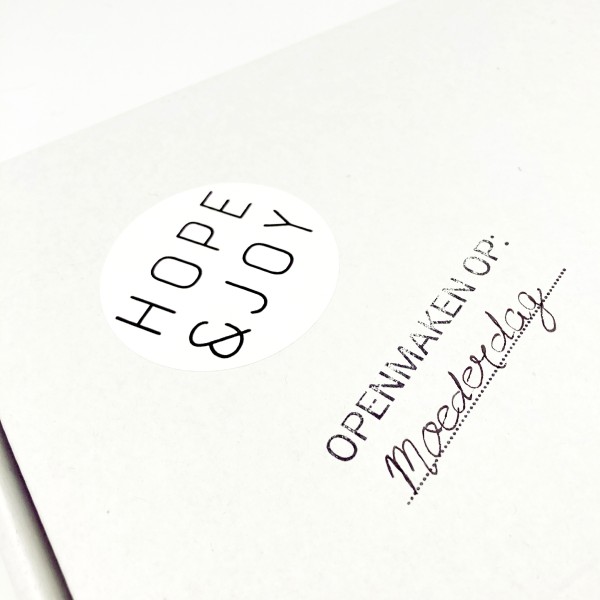 HOPE
&JOY
OPENMAKEN OP:
Moederdag